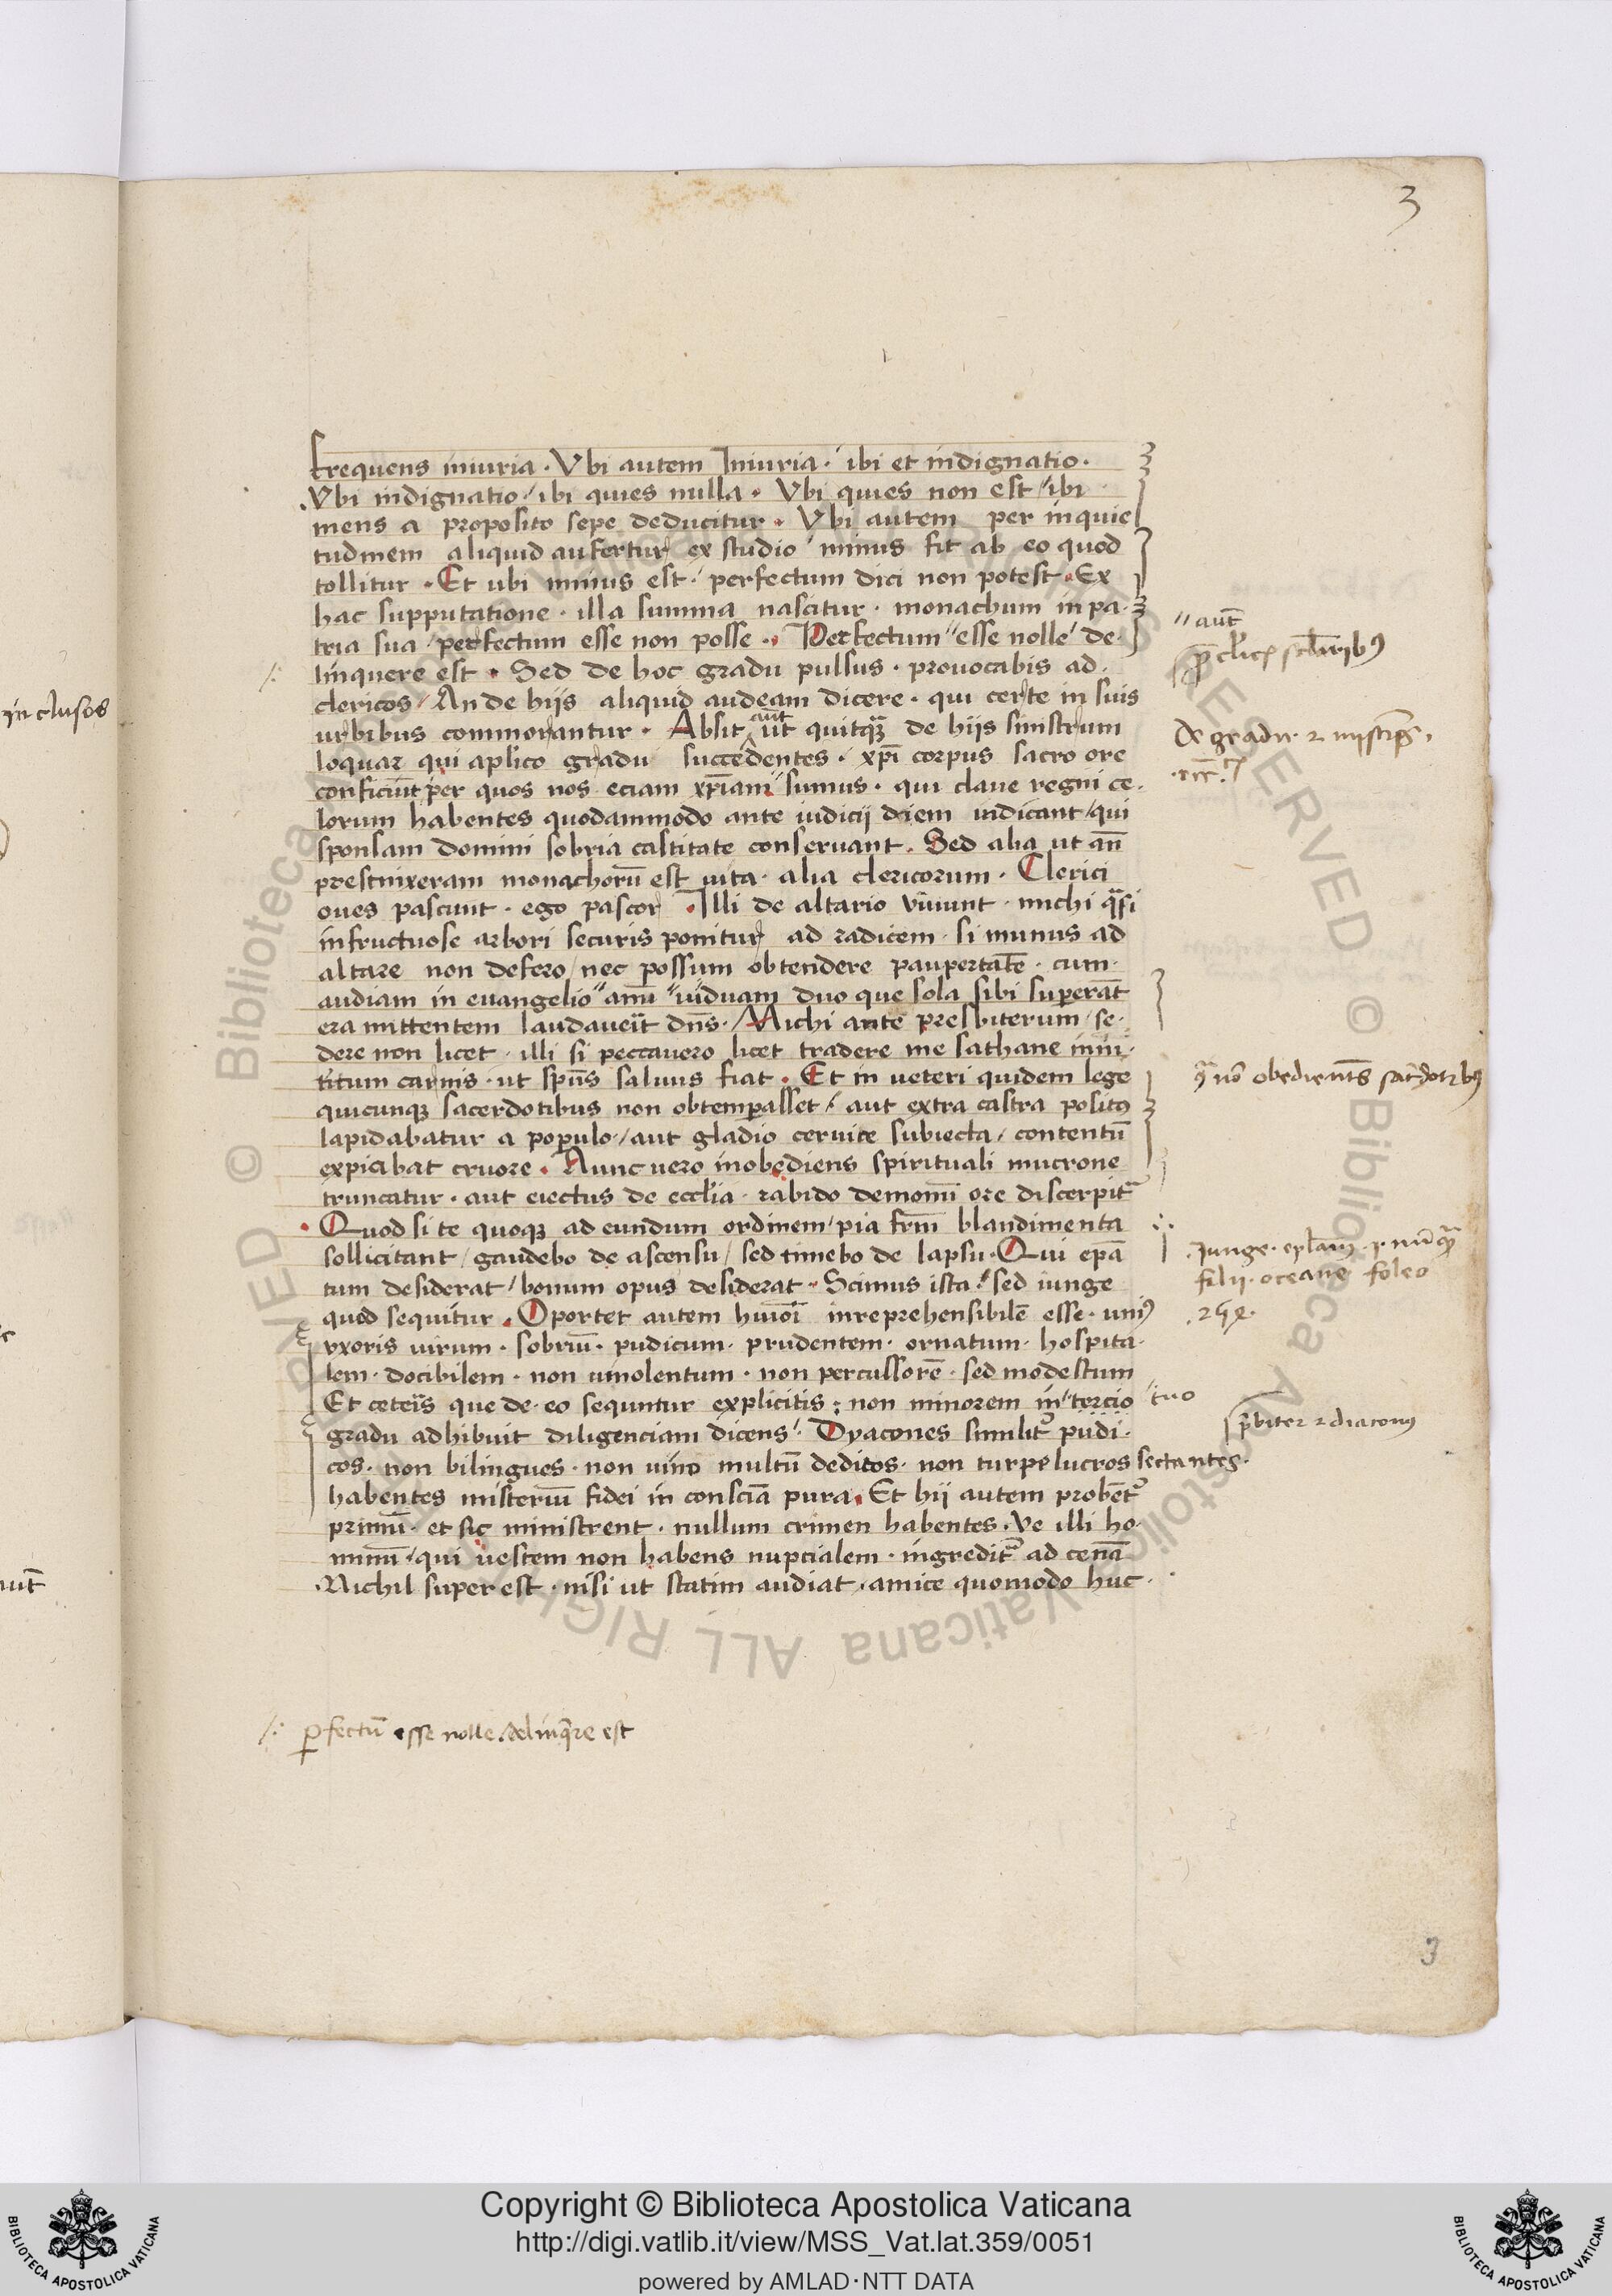 3
frequens iniuria · Vbi autem Iniuria · ibi et indignatio ·
Vbi indignatio / ibi quies nulla · Vbi quies non est / ibi
mens a proposito sepe deducitur · Vbi autem per inquie
tudinem aliquid aufertur ex studio minus fit ab eo quod
tollitur · Et ubi minus est · perfectum dici non potest · Ex
hac supputatione · illa summa nascitur · monachum in pa·
tria sua / perfectum esse non posse · Perfectum esse nolle de·
linquere est · Sed de hoc gradu pulsus · prouocabis ad ·
clericos / An de hijs aliquid audeam dicere · qui certe in suis
urbibus commorantur · Absit aūt ut quitqꝫ de hijs sinistrum
loquar qui aplico gradu succedentes · xp̄i corpus sacro ore
conficiūt per quos nos eciam xp̄iani sumus · qui claue regni ce·
lorum habentes quodammodo ante iudicij diem iudicant / qui
sponsam domini sobria castitate conseruant · Sed alia ut an̄
prestrinxeram monachorū est uita · alia clericorum · Clerici
oues pascunt · ego pascor · Illi de altario viuunt · michi qᷓsi
infructuose arbori securis ponitur ad radicem · si munus ad
altare non defero / nec possum obtendere paupertatē · cum ·
audiam in euangelio anū uiduam duo que sola sibi superāt
era mittentem laudauerit dn̄s · / Michi ante presbiterum / se·
dere non licet · illi si peccauero licet tradere me sathane in in·
titum carnis · ut spūs saluus fiat · Et in ueteri quidem lege
quicunqꝫ sacerdotibus non obtemperasset / aut extra castra positꝰ
lapidabatur a populo · / aut gladio ceruice subiecta / contentū
expiabat cruore · Nunc uero inobediens spirituali mucrone
truncatur · aut eiectus de eccl̄ia · rabido demonū ore discerpitᷣ
· Quod si te quoqꝫ ad eundum ordinem / pia frm̄ blandimenta
sollicitant / gaudebo de ascensu / sed timebo de lapsu · Qui ep̄a
tum desiderat / bonum opus desiderat · Scimus ista · sed iunge
quod sequitur · Oportet autem huiōi inreprehensibilē esse · uniꝰ
vxoris uirum · sobriū · pudicum · prudentem · ornatum · hospita·
lem · docibilem · non uinolentum · non percussorē · sed modestum
Et ceteris que de eo sequntur explicitis : non minorem in tercio
gradu adhibuit diligenciam dicens · Dyacones similitᷣ pudi·
cos · non bilingues · non uino multū deditos · non turpe lucros sectantes ·
habentes misteriū fidei in consciā pura · Et hii autem probētᷣ
primū · et sic ministrent · nullum crimen habentes · Ve illi ho·
minū / qui uestem non habens nupcialem · ingreditᷣ ad cenā
· Nichil super est · nisi ut statim audiat · amice quomodo huc ·
perfectū esse nolle / delinqͥre est
in clusos
aūt
De gradu
qͣ nō obedientes sac̄dotibꝰ
Iunge · epl̄am
filij · oceane · foleo
tuo
p̄biter ⁊ diaconus
3
Copyright © Biblioteca Apostolica Vaticana
http://digi.vatlib.it/view/MSS_Vat.lat.359/0051
powered by AMLAD·NTT DATA
BIBLIOTECA APOSTOLICA VATICANA
BIBLIOTECA APOSTOLICA VATICANA